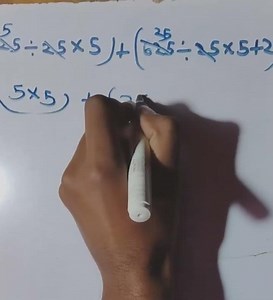 5 25
25÷25×5)+(625÷25×5+2
(5×5) + (25